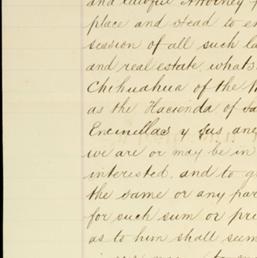 and lawful Attorney f
place and stead to en
session of all such la
and real estate, whats
Chihuahua of the
as the Hacienda of
Encinillas y sus ane
we are or may be in
interested, and to g
the same or any par
for such sum or pri
as to him shall seem